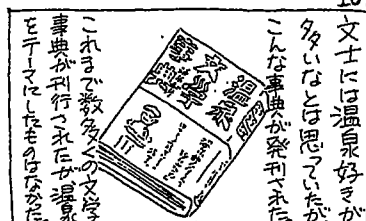 文士には温泉好きが
多いなとは思っていたが
こんな事典が発刊された
温泉
文学
事典
これまで数多くの文学
事典が刊行されたが温泉
をテーマにしたものはなかった